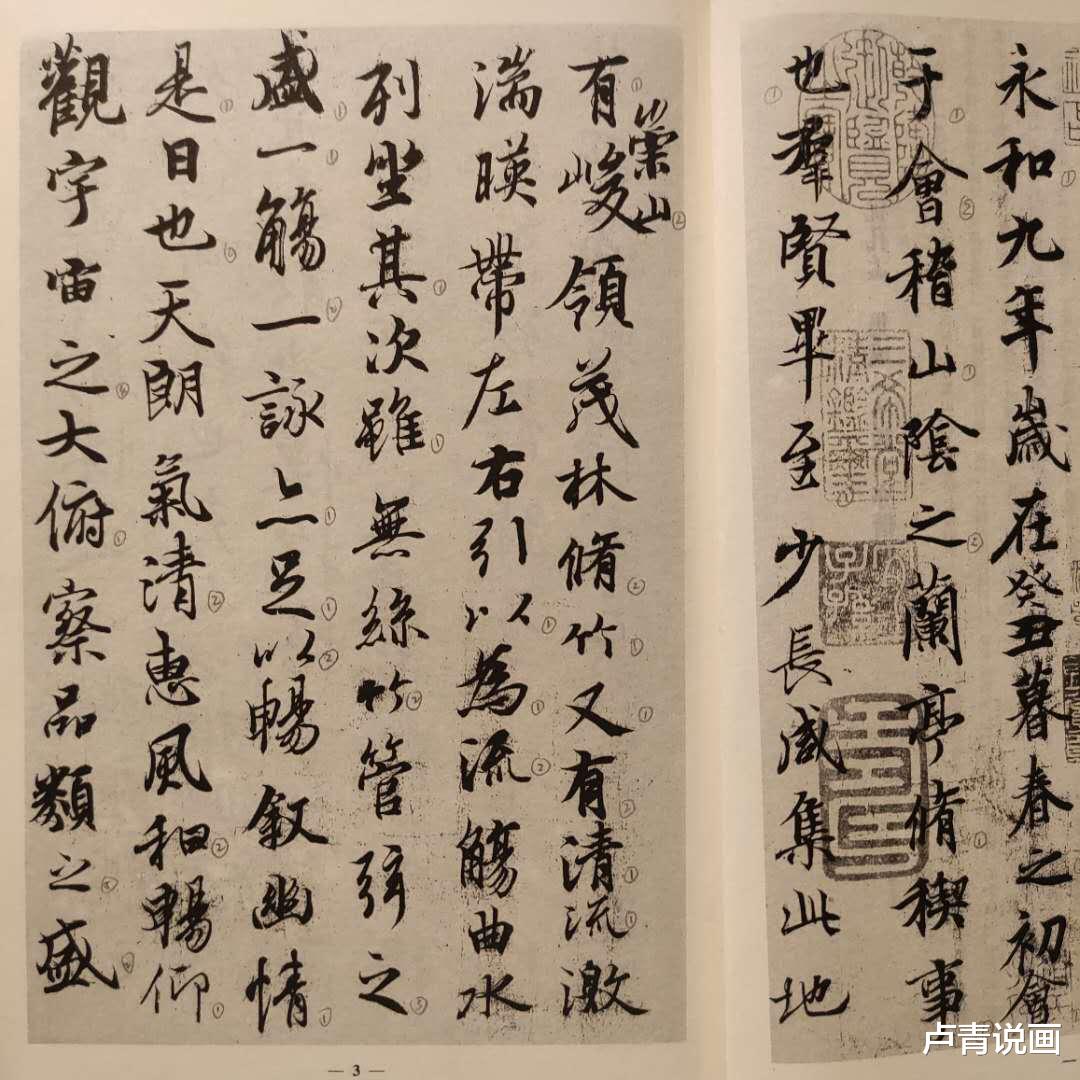 永和九年歲在癸丑暮春之初會
于會稽山陰之蘭亭脩稧事
也羣賢畢至少長咸集此地
有崇山峻領茂林脩竹又有清流激
湍暎帶左右引以為流觴曲水
列坐其次雖無絲竹管弦之
盛一觴一詠亦足以暢叙幽情
是日也天朗氣清惠風和暢仰
觀宇宙之大俯察品類之盛
— 3 —
卢青说画